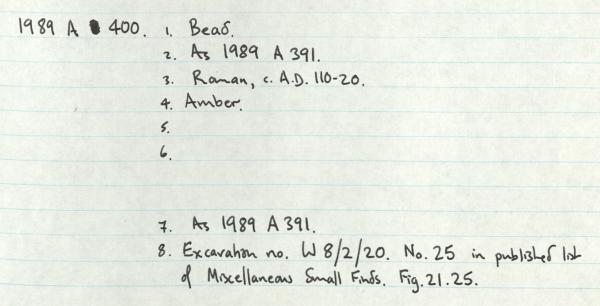 1989 A 400. 1. Bead.
2. As 1989 A 391.
3. Roman, c. A.D. 110-20.
4. Amber.
5.
6.
7. As 1989 A 391.
8. Excavation no. W 8/2/20. No. 25 in published list
of Miscellaneous Small Finds. Fig. 21.25.